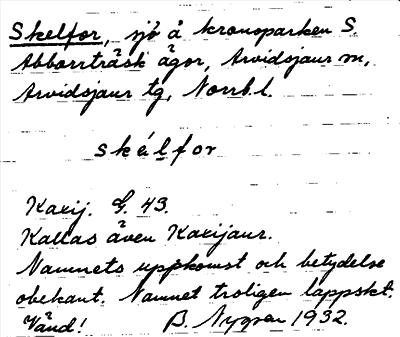 Skelfor, sjö å kronoparken S.
Abborrträsk ägor, Arvidsjaur m,
Arvidsjaur tg, Norrb.l.
skélfor
Karij. G. 43.
Kallas även Karijaur.
Namnets uppkomst och betydelse
obekant. Namnet troligen lappskt.
Vänd! B. Nygren 1932.